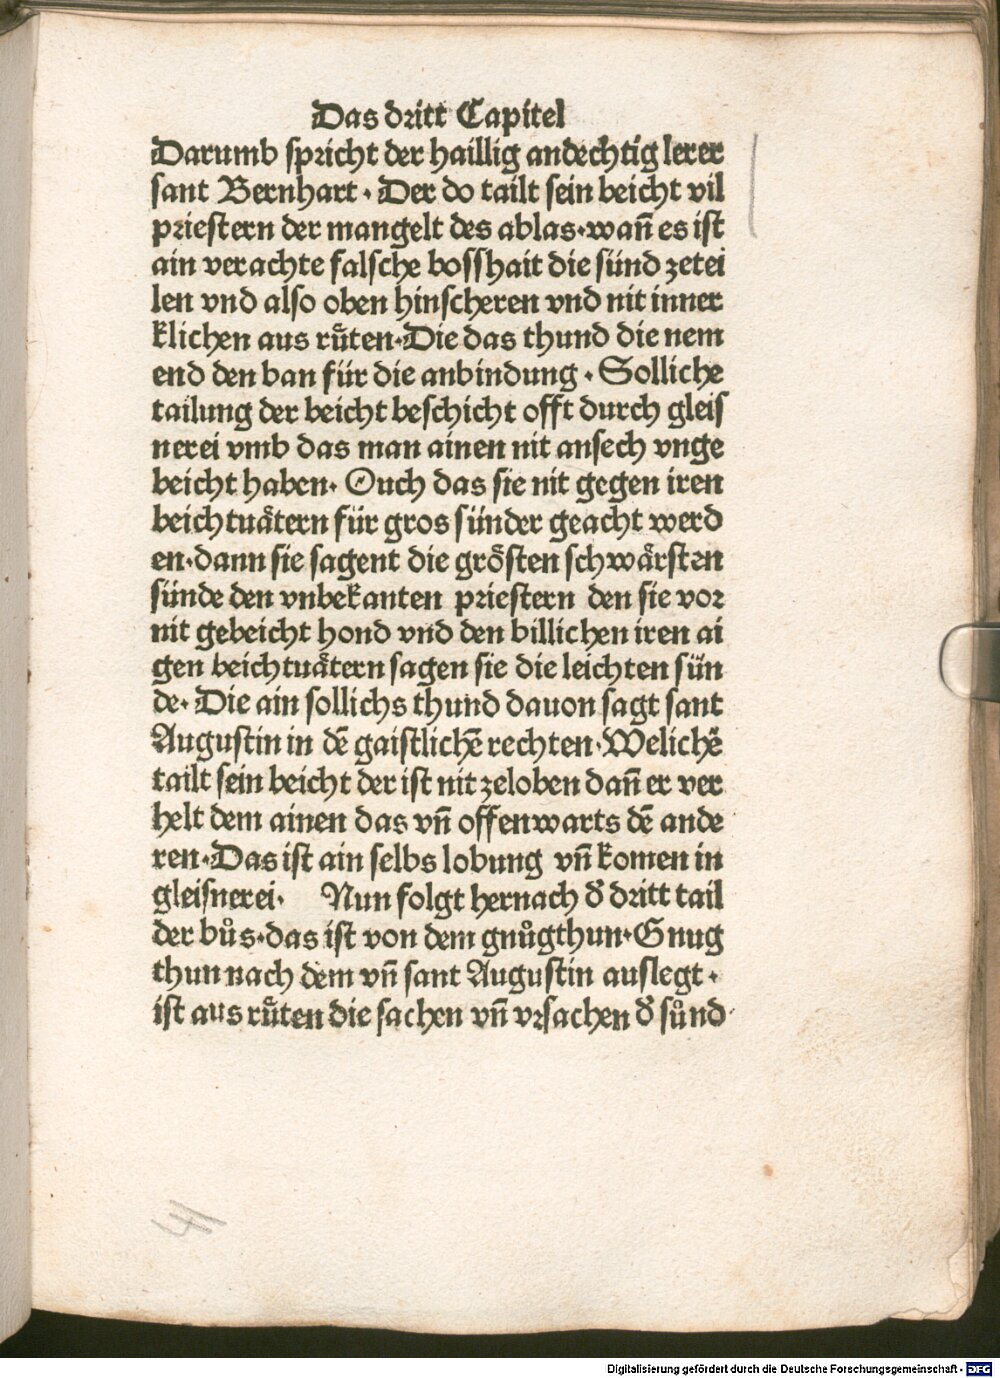 Das dritt Capitel
Darumb spricht der haillig andechtig lerer
sant Bernhart · Der do tailt sein beicht vil
priestern der mangelt des ablas·wañ es ist
ain verachte falsche bosshait die sünd zetei
len vnd also oben hinscheren vnd nit inner
klichen aus růten·Die das thund die nem
end den ban für die anbindung · Solliche
tailung der beicht beschicht offt durch gleis
nerei vmb das man ainen nit ansech vnge
beicht haben· Ouch das sie nit gegen iren
beichtuåtern für gros sünder geacht werd
en·dann sie sagent die grösten schwårsten
sünde den vnbekanten priestern den sie vor
nit gebeicht hond vnd den billichen iren ai
gen beichtuåtern sagen sie die leichten sün
de· Die ain sollichs thund dauon sagt sant
Augustin in dē gaistlichē rechten·Welichē
tailt sein beicht der ist nit zeloben dañ er ver
helt dem ainen das vñ offenwarts dē ande
ren·Das ist ain selbs lobung vñ komen in
gleisnerei· Nun folgt hernach đ dritt tail
der bůs·das ist von dem gnůgthun·Gnug
thun nach dem vñ sant Augustin auslegt ·
ist aus růten die sachen vñ vrsachen đ sůnd·
Digitalisierung gefördert durch die Deutsche Forschungsgemeinschaft - DFG